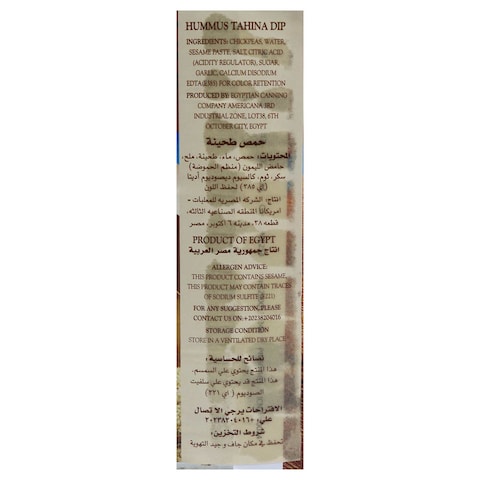 HUMMUS TAHINA DIP
INGREDIENTS: CHICKPEAS, WATER,
SESAME PASTE, SALT, CITRIC ACID
(ACIDITY REGULATOR), SUGAR,
GARLIC, CALCIUM DISODIUM
EDTA(E385) FOR COLOR RETENTION
PRODUCED BY: EGYPTIAN CANNING
COMPANY AMERICANA 3RD
INDUSTRIAL ZONE, LOT38, 6TH
OCTOBER CITY, EGYPT
حمص طحينة
المحتويات: حمص، ماء، طحينة، ملح،
حامض الليمون (منظم الحموضة)
سكر، ثوم، كالسيوم ديسوديوم أديتا
(إي ٣٨٥) لحفظ اللون
انتاج: الشركة المصريه للمعلبات -
امريكانا المنطقه الصناعيه الثالثه،
قطعه ٣٨، مدينه ٦ أكتوبر، مصر
PRODUCT OF EGYPT
انتاج جمهورية مصر العربية
ALLERGEN ADVICE:
THIS PRODUCT CONTAINS SESAME,
THIS PRODUCT MAY CONTAIN TRACES
OF SODIUM SULFITE (E221)
FOR ANY SUGGESTION, PLEASE
CONTACT US ON: +20238204016
STORAGE CONDITION
STORE IN A VENTILATED DRY PLACE
نصائح للحساسية:
هذا المنتج يحتوي علي السمسم.
هذا المنتج قد يحتوي علي سلفيت
الصوديوم ( اي ٢٢١)
الاقتراحات يرجي الاتصال
علي: +٢٠٢٣٨٢٠٤٠١٦
شروط التخزين:
تحفظ في مكان جاف وجيد التهوية